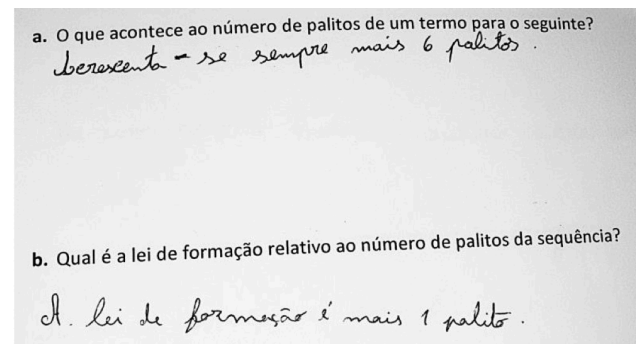 a. O que acontece ao número de palitos de um termo para o seguinte?
berescenta - se sempre mais 6 palitos.
b. Qual é a lei de formação relativo ao número de palitos da sequência?
A. lei de formação é mais 1 palito.